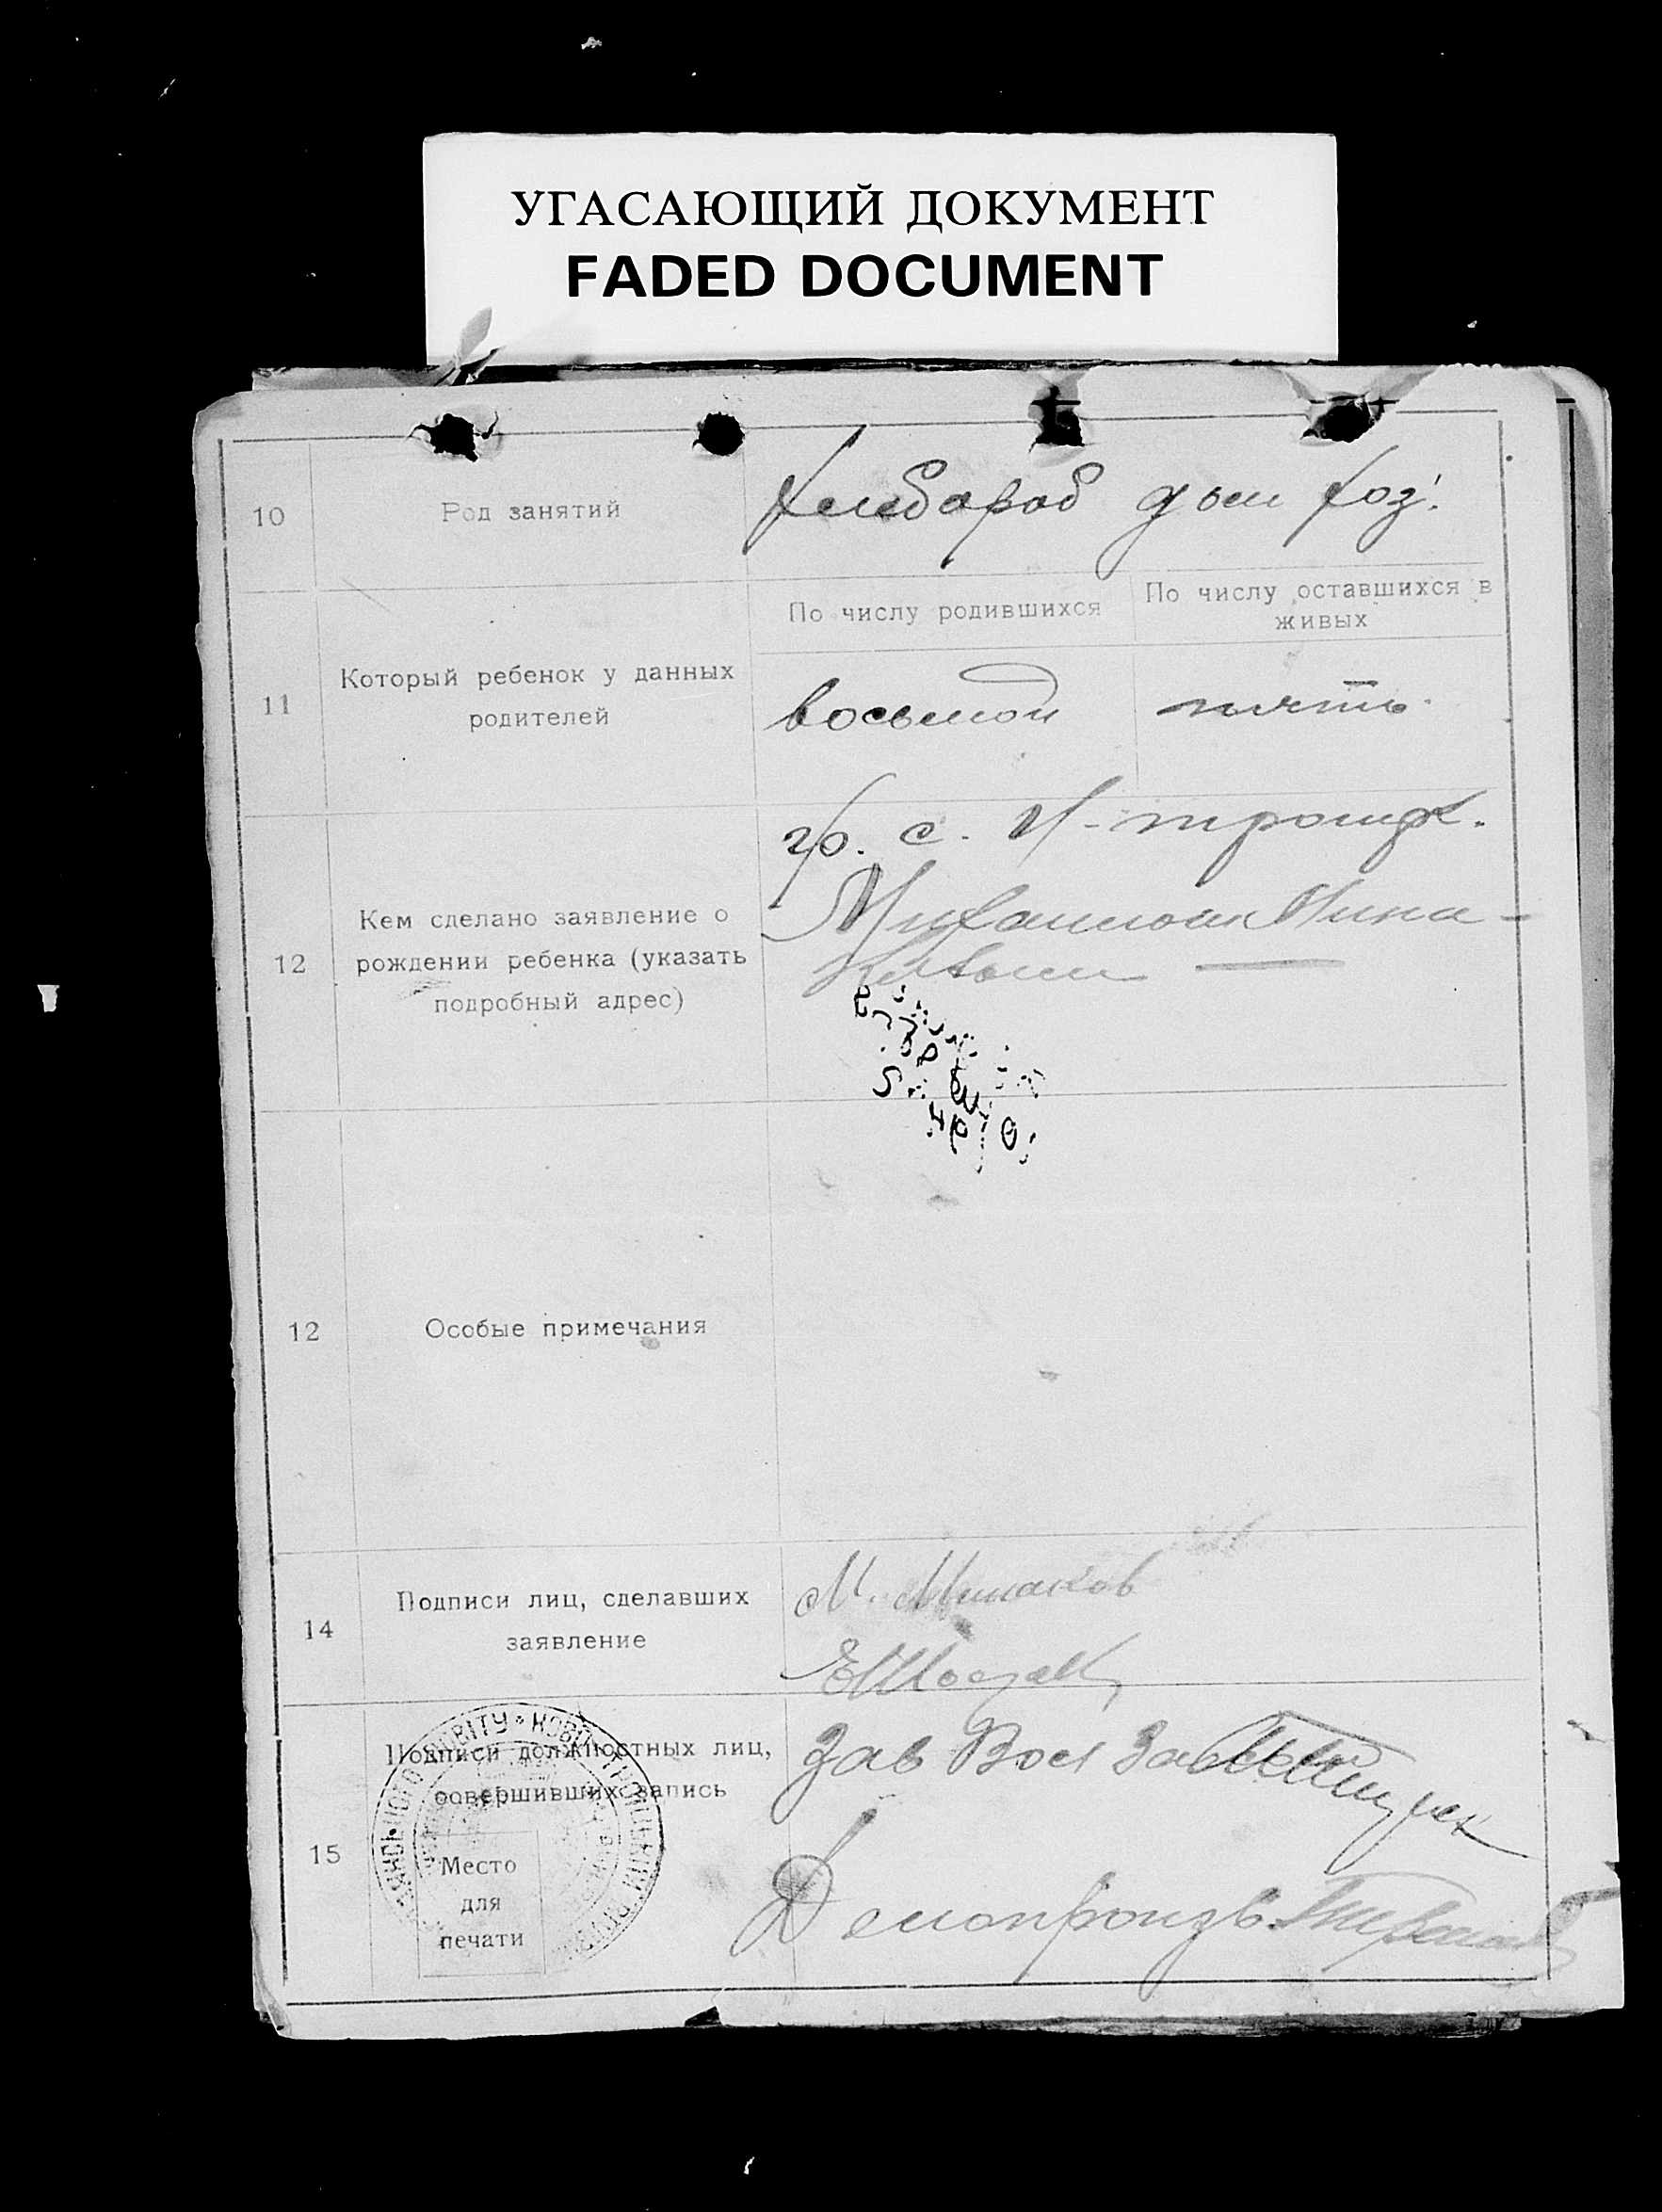 УГАСАЮЩИЙ ДОКУМЕНТ
FADED DOCUMENT
10
Род занятий
Хлебороб дом хоз.
11
Который ребенок у данных
родителей
По числу родившихся
По числу оставшихся в
живых
восьмой
пять
12
Кем сделано заявление о
рождении ребенка (указать
подробный адрес)
гр. с. Н-троицк.
Михаилом Мина-
ковым
12
Особые примечания
14
Подписи лиц, сделавших
заявление
М. Минаков
15
Подписи должностных лиц,
совершивших запись
Место
для
печати
Зав
Делопроизв.